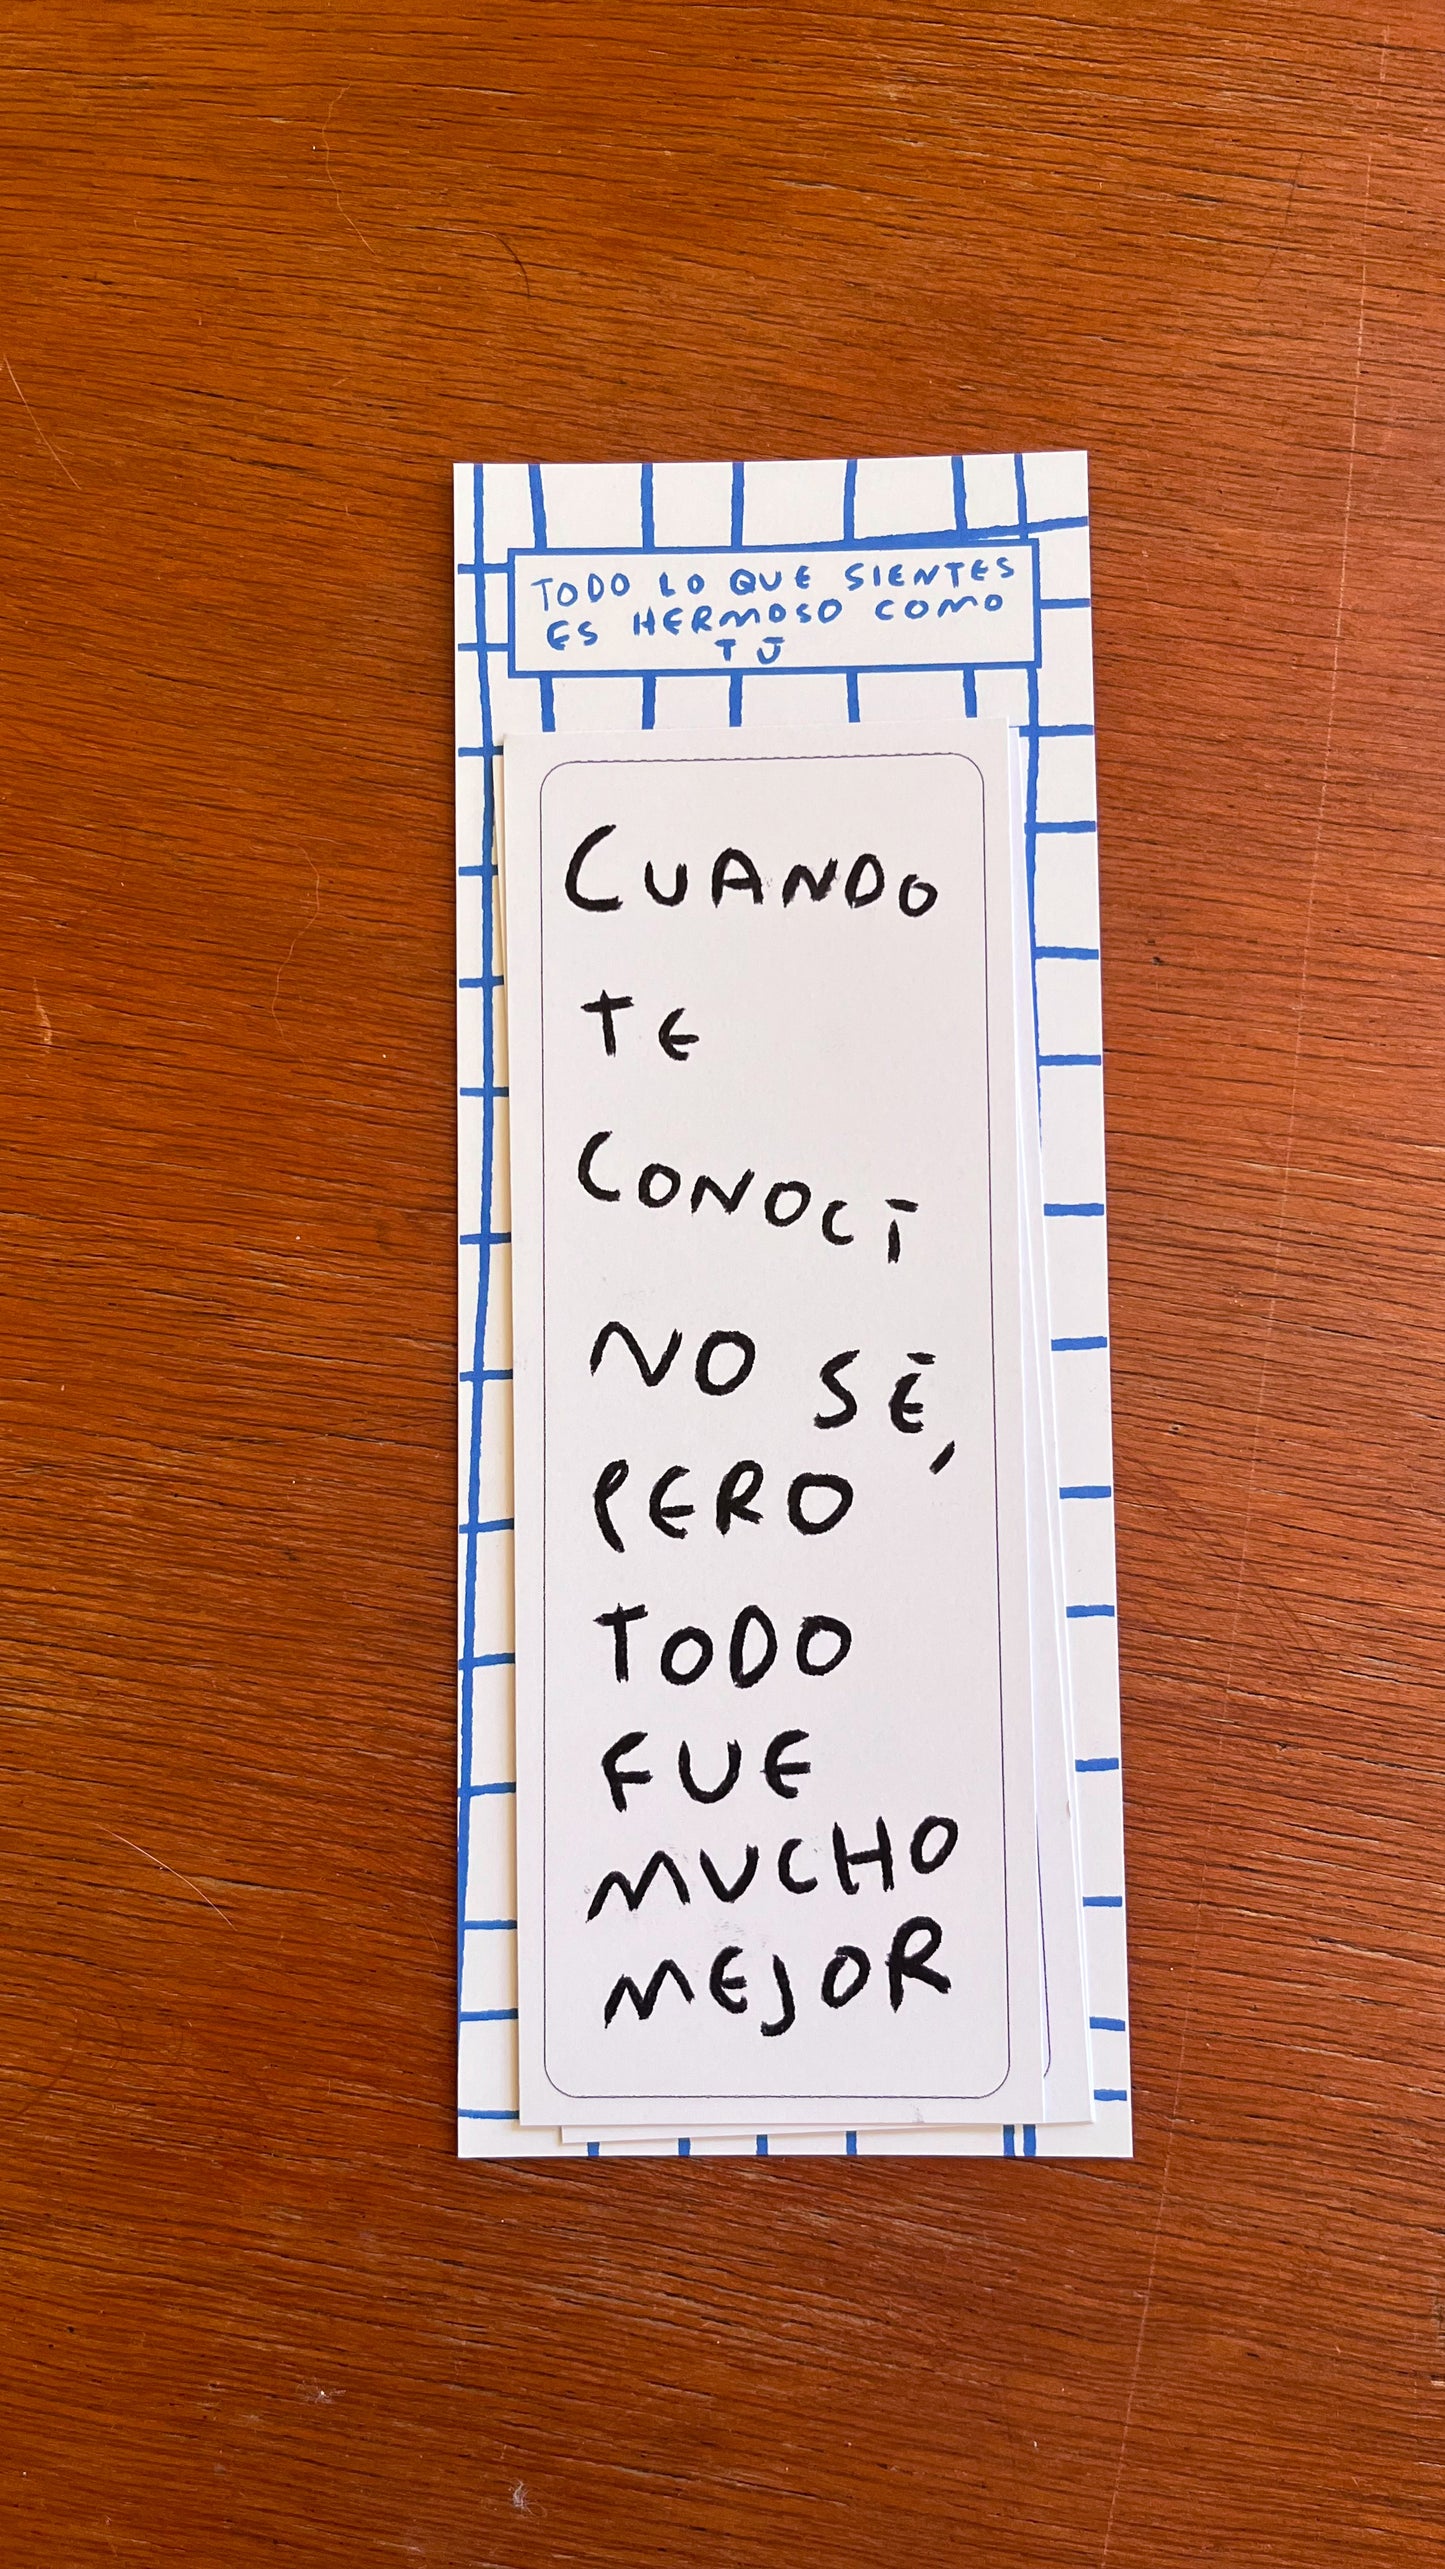 TODO LO QUE SIENTES
ES HERMOSO COMO
TÚ
CUANDO
TE
CONOCÍ
NO SÉ,
PERO
TODO
FUE
MUCHO
MEJOR